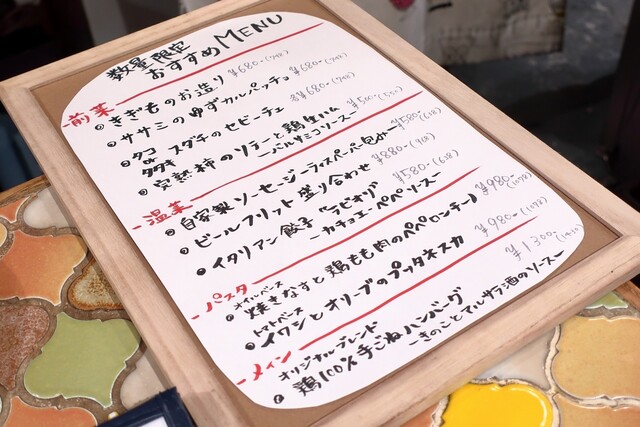 数量限定
おすすめMENU
前菜
きざものお造り ¥680-(748)
ササミのゆずカルパッチョ ¥680-(748)
タコ or タタキ スダチのセビーチェ 各¥680-(748)
完熟柿のソテーと鶏生ハム ¥500-(550)
ーバルサミコソースー
温菜
自家製ソーセージーライスペーパー包みー ¥580-(638)
ビールフリット盛り合わせ ¥880-(968)
イタリアン餃子"ラビオリ" ¥580-(638)
ーカチョエ・ペペソースー
パスタ
オイルベース
焼きなすと鶏もも肉のペペロンチーノ ¥980-(1078)
トマトベース
イワシとオリーブのプッタネスカ ¥980-(1078)
メイン
オリジナルブレンド
鶏100%手ごねハンバーグ ¥1300-(1430)
ーきのことマルサラ酒のソースー